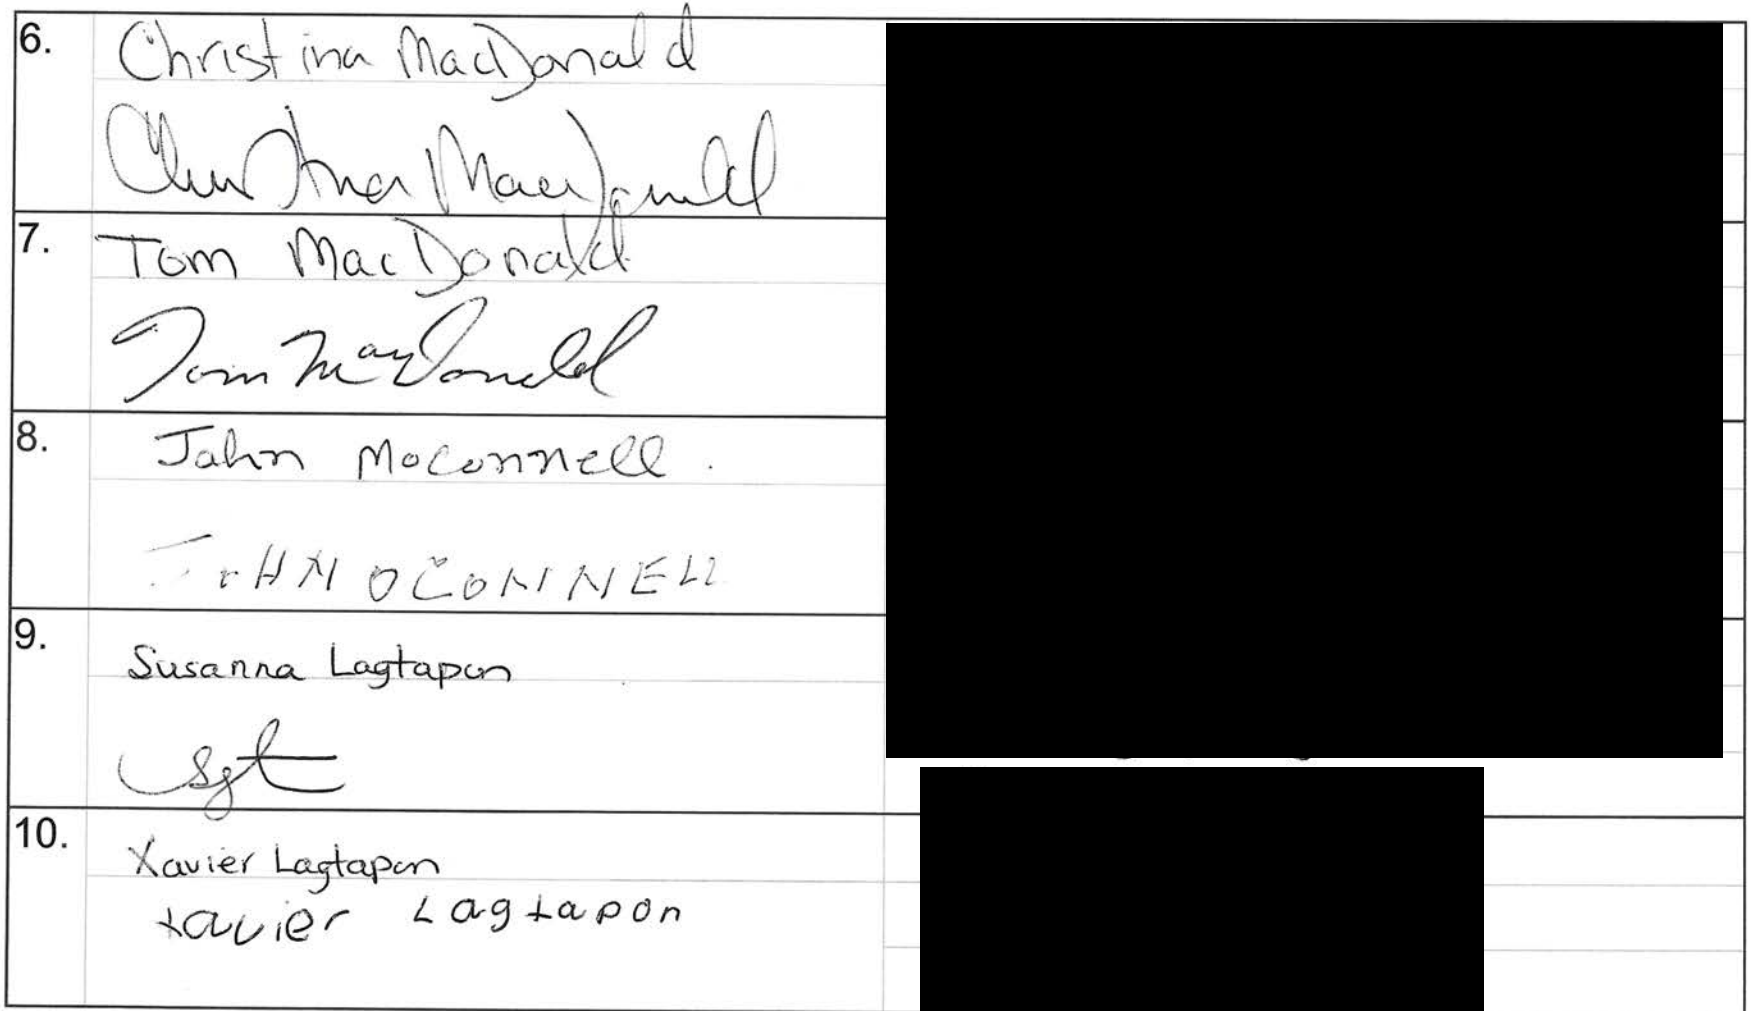 6.
Christina MacDonald
Christina MacDonald
7.
Tom MacDonald
Tom MacDonald
8.
John Moconnell.
JOHN OCONNELL
9.
Susanna Lagtapon
10.
Xavier Lagtapon
xavier Lagtapon